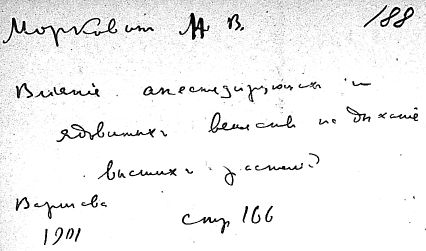 Морковин Н В. 188
Влиянiе анестезирующих и
ядовитыхъ веществ на дыханiе
высших растенiй
Варшава
1901 стр 166